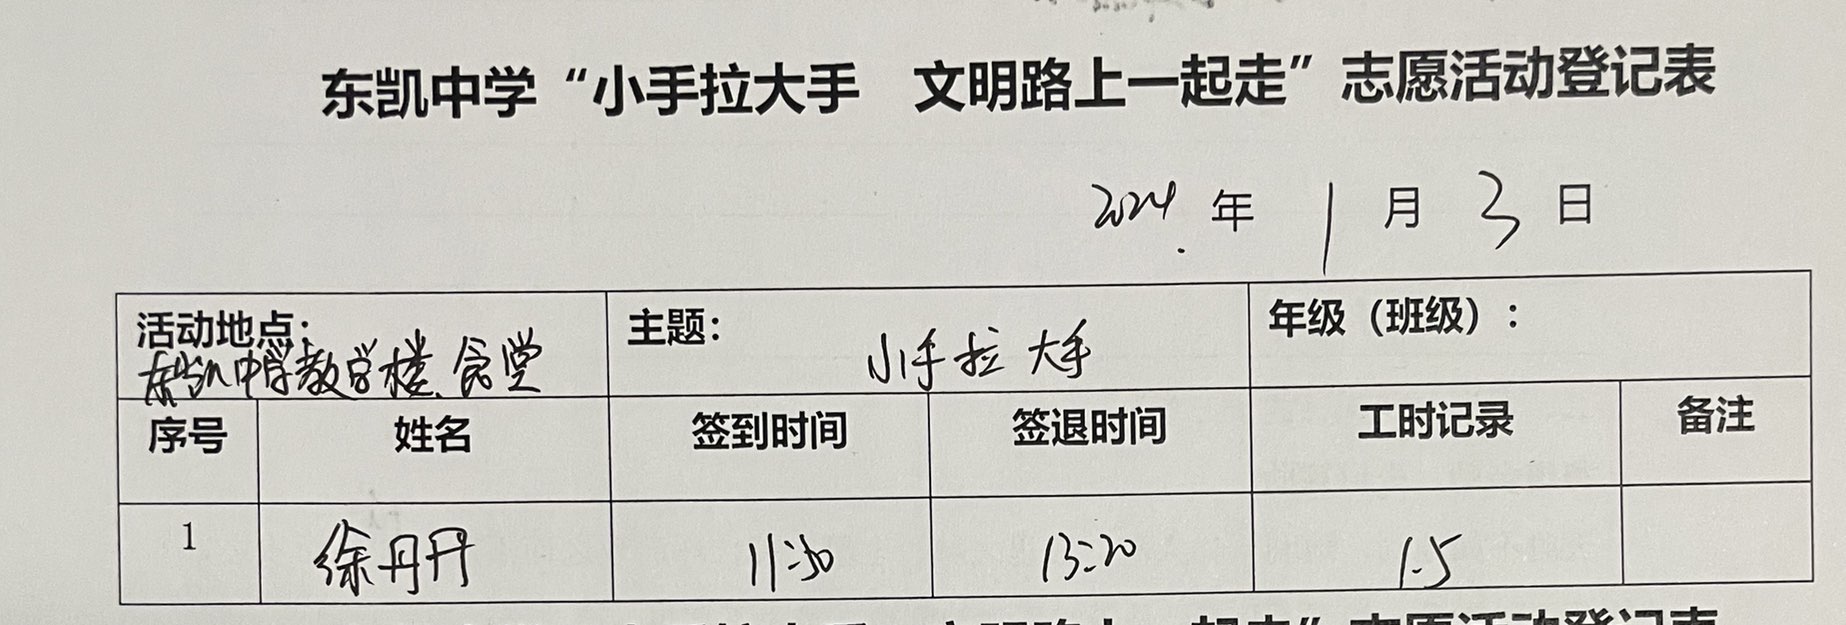 东凯中学“小手拉大手 文明路上一起走”志愿活动登记表
2024 年 1 月 3 日
活动地点: 主题: 年级（班级）:
东凯中学教学楼、食堂 小手拉大手
序号 姓名 签到时间 签退时间 工时记录 备注
1 徐丹丹 11:50 13:20 1.5